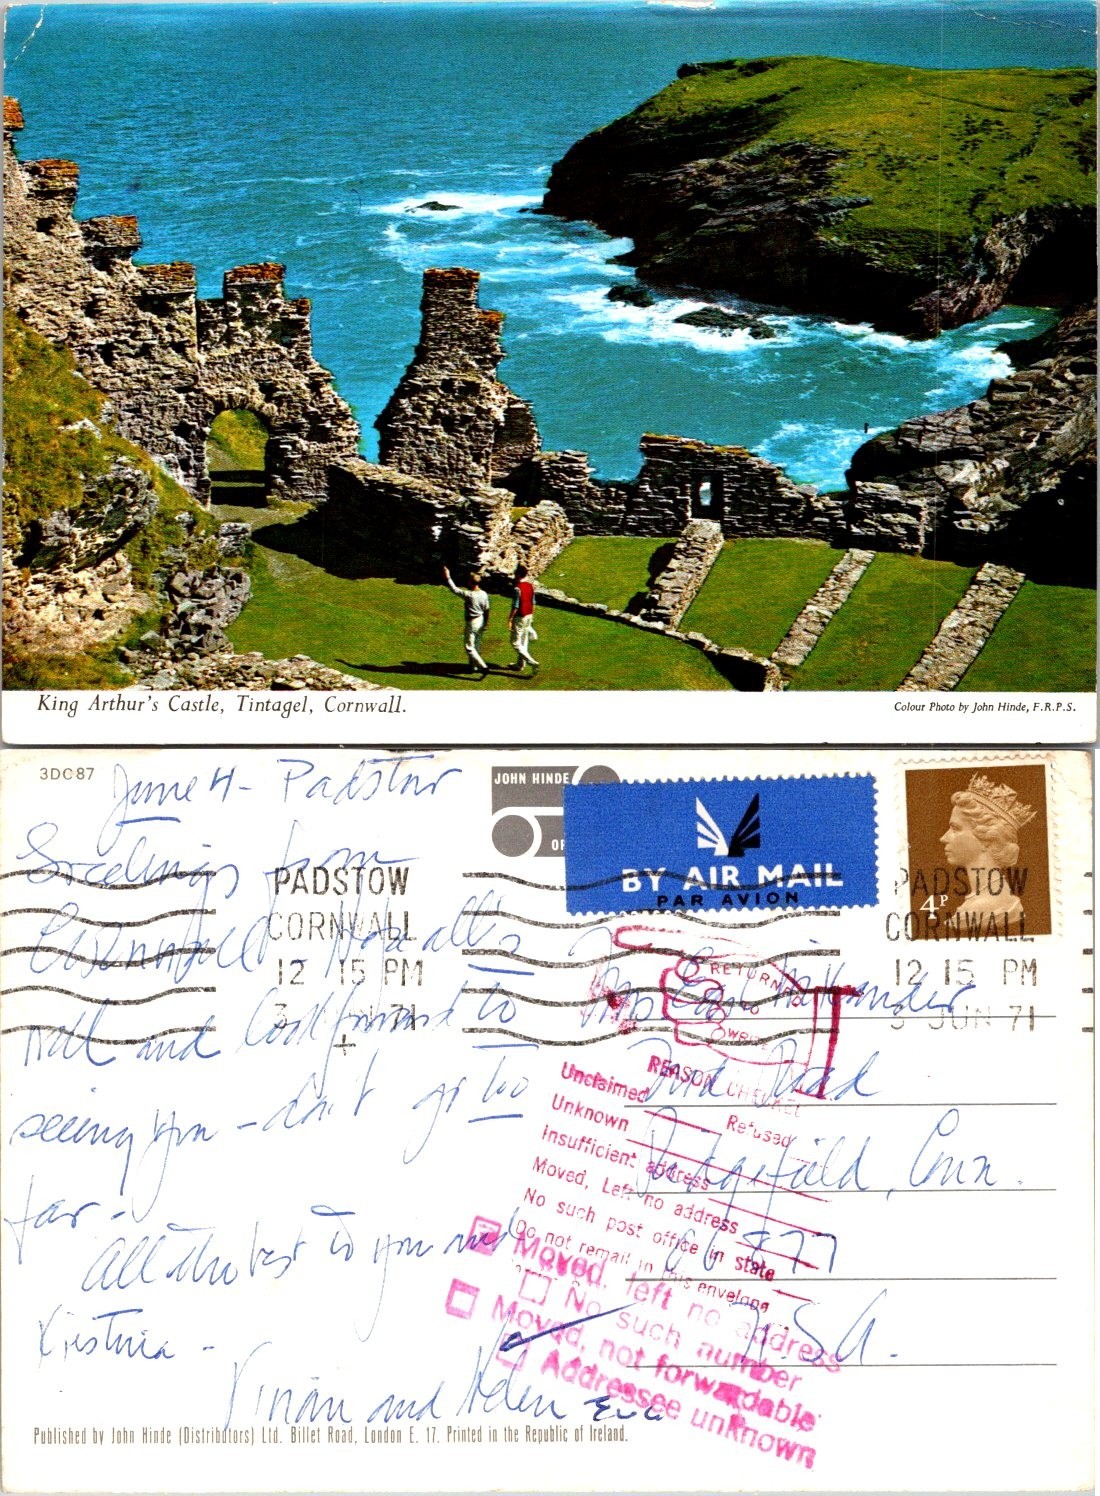 King Arthur's Castle, Tintagel, Cornwall.
Colour Photo by John Hinde, F.R.P.S.
3DC87
JOHN HINDE
BY AIR MAIL
PAR AVION
4P
PADSTOW
CORNWALL
12 15 PM
3 JUN 71
PADSTOW
CORNWALL
12 15 PM
3 JUN 71
June 4 - Padstow
Greetings from
Cornwall
well and look forward to
seeing you - don't go too
far -
All the best to you and
Kristina -
Vivian and Helen
Mrs Carl
Road
Ridgefield, Conn.
06877
U.S.A.
RETURNED
TO
WRITER
REASON CHECKED
Unclaimed Refused
Unknown
Insufficient address
Moved, Left no address
No such post office in state
Do not remail in this envelope
Moved, left no address
No such number
Moved, not forwardable
Addressee unknown
Published by John Hinde (Distributors) Ltd. Billet Road, London E. 17. Printed in the Republic of Ireland.